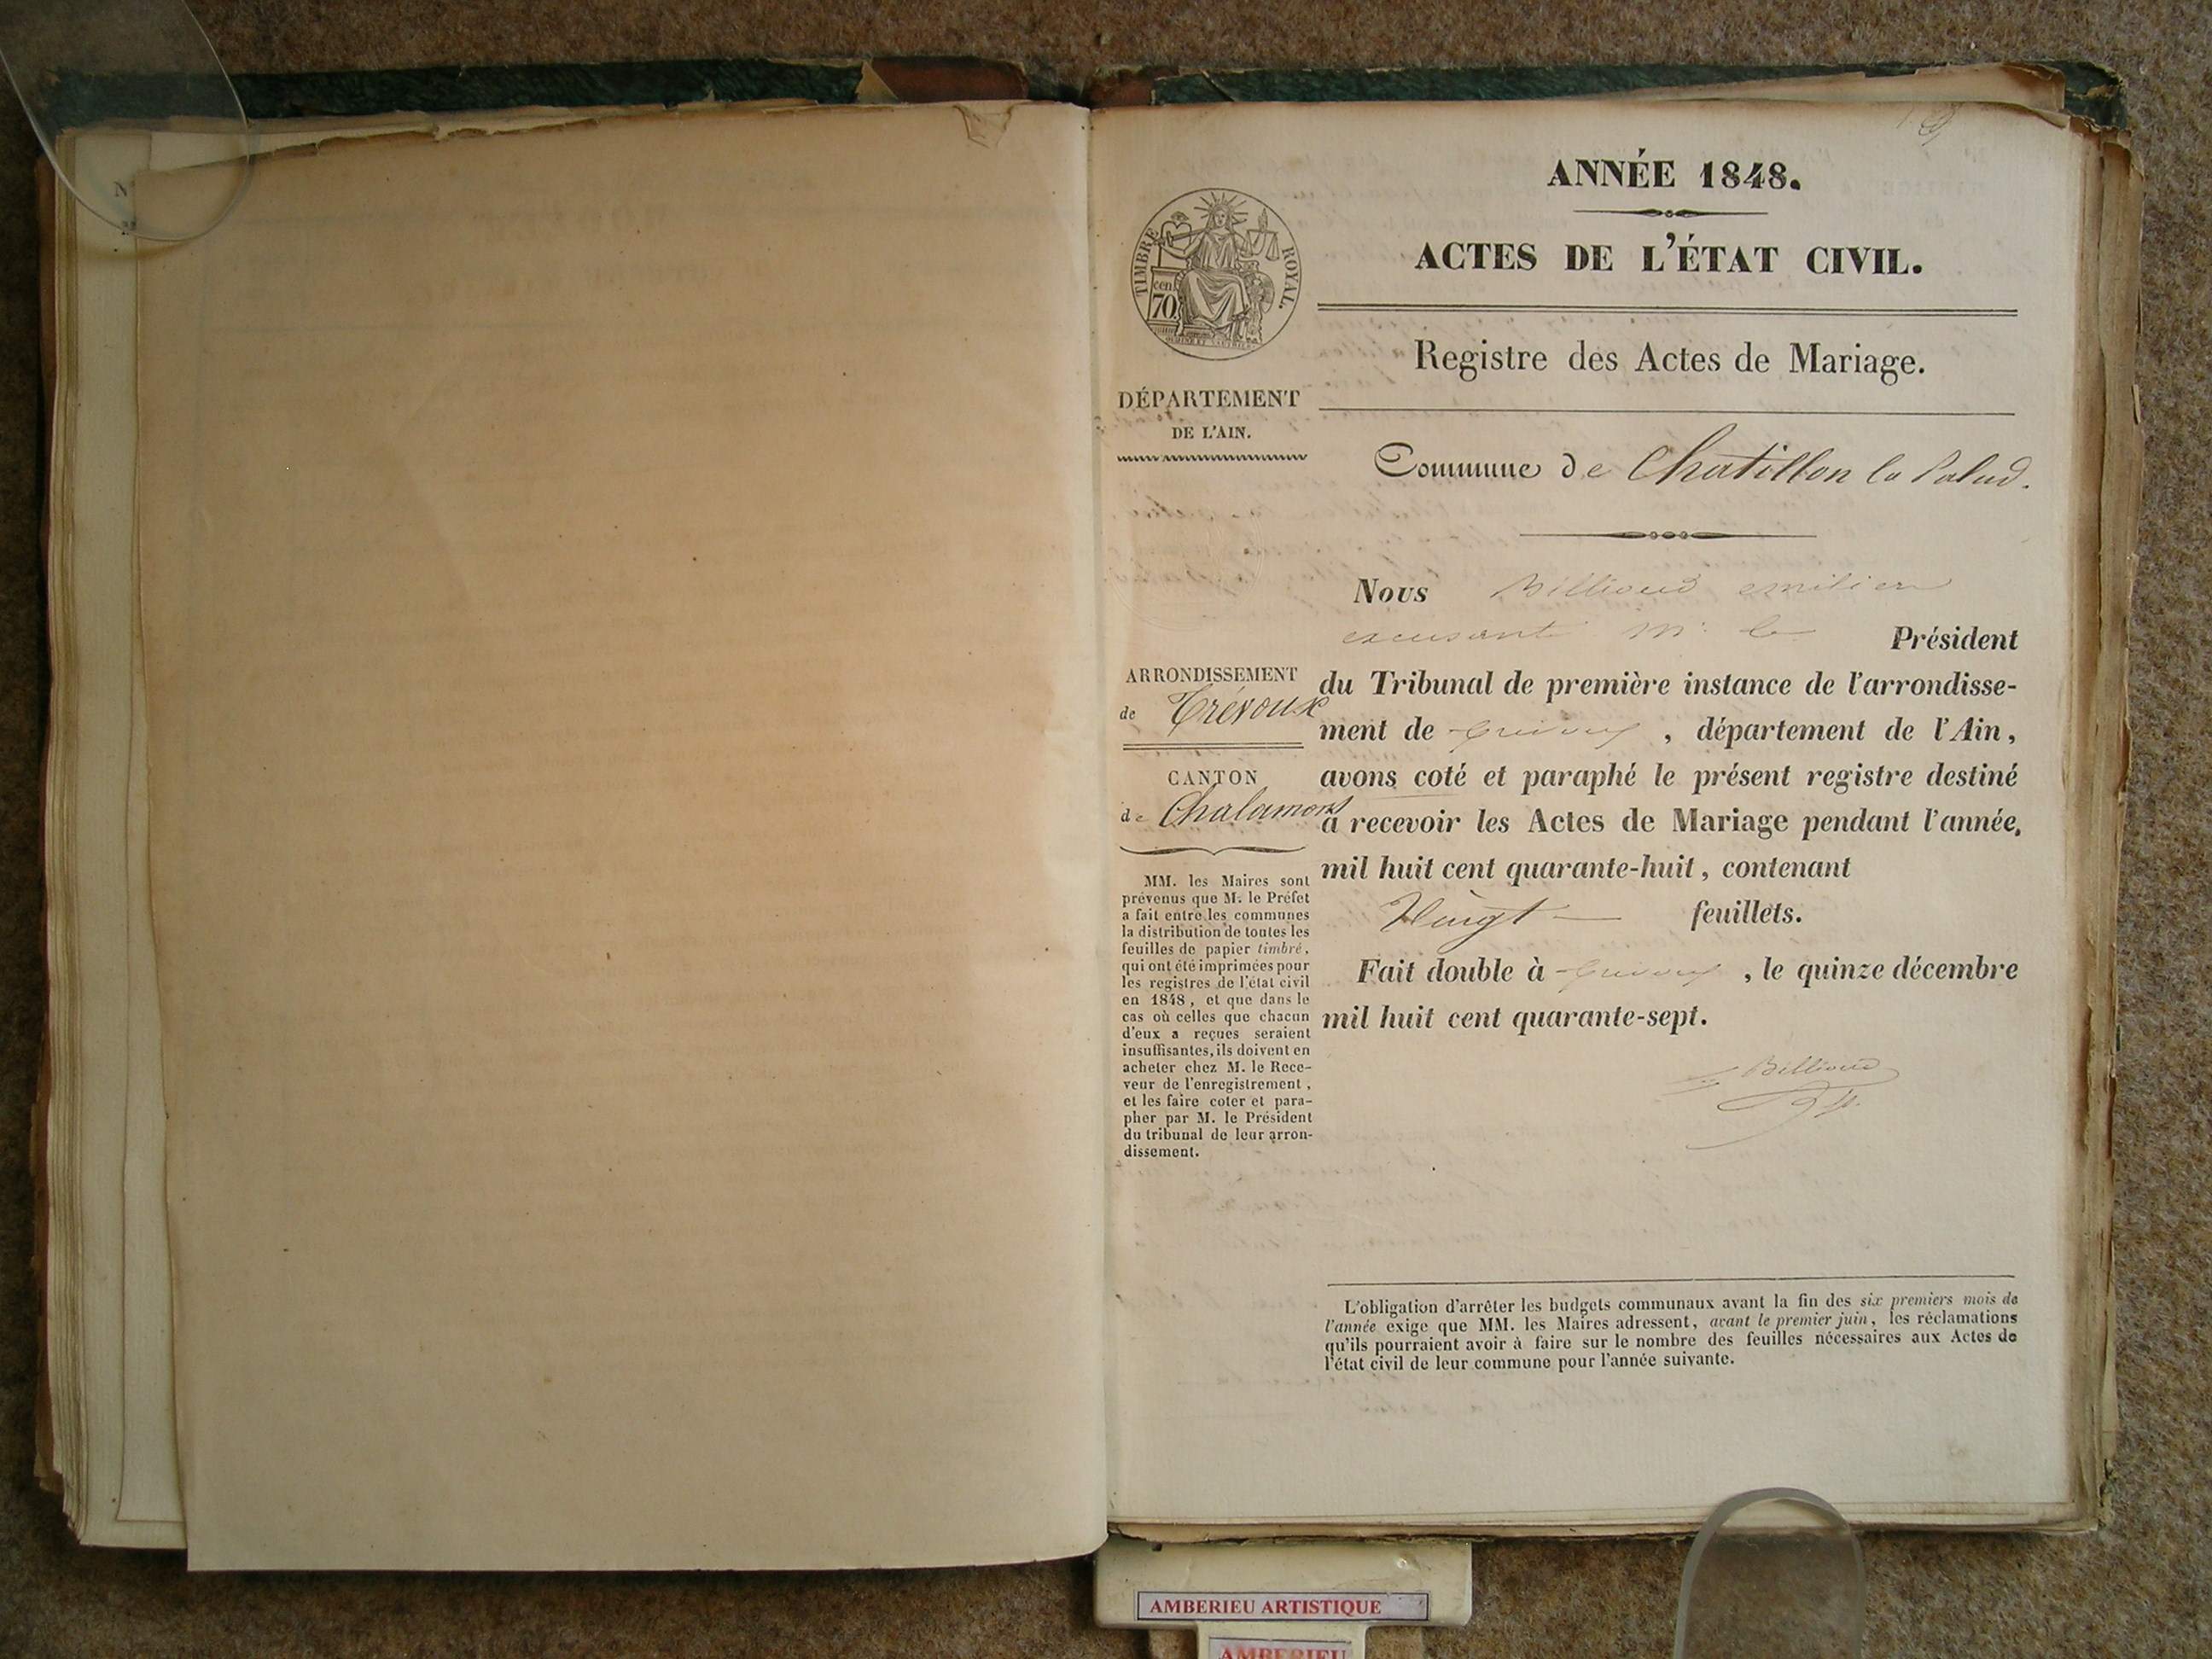 ANNÉE 1848.
ACTES DE L'ÉTAT CIVIL.
Registre des Actes de Mariage.
Commune de Chatillon la Palud.
TIMBRE ROYAL.
cen.
70
DÉPARTEMENT
DE L'AIN.
ARRONDISSEMENT
de Trévoux
CANTON
de Chalamont
MM. les Maires sont
prévenus que M. le Préfet
a fait entre les communes
la distribution de toutes les
feuilles de papier timbré,
qui ont été imprimées pour
les registres de l'état civil
en 1848, et que dans le
cas où celles que chacun
d'eux a reçues seraient
insuffisantes, ils doivent en
acheter chez M. le Rece-
veur de l'enregistrement,
et les faire coter et para-
pher par M. le Président
du tribunal de leur arron-
dissement.
Nous Billioud emilien
Mr. le Président
du Tribunal de première instance de l'arrondisse-
ment de Trévoux, département de l'Ain,
avons coté et paraphé le présent registre destiné
à recevoir les Actes de Mariage pendant l'année,
mil huit cent quarante-huit, contenant
Vingt feuillets.
Fait double à Trévoux, le quinze décembre
mil huit cent quarante-sept.
Billioud
L'obligation d'arrêter les budgets communaux avant la fin des six premiers mois de
l'année exige que MM. les Maires adressent, avant le premier juin, les réclamations
qu'ils pourraient avoir à faire sur le nombre des feuilles nécessaires aux Actes de
l'état civil de leur commune pour l'année suivante.
AMBERIEU ARTISTIQUE
AMBERIEU